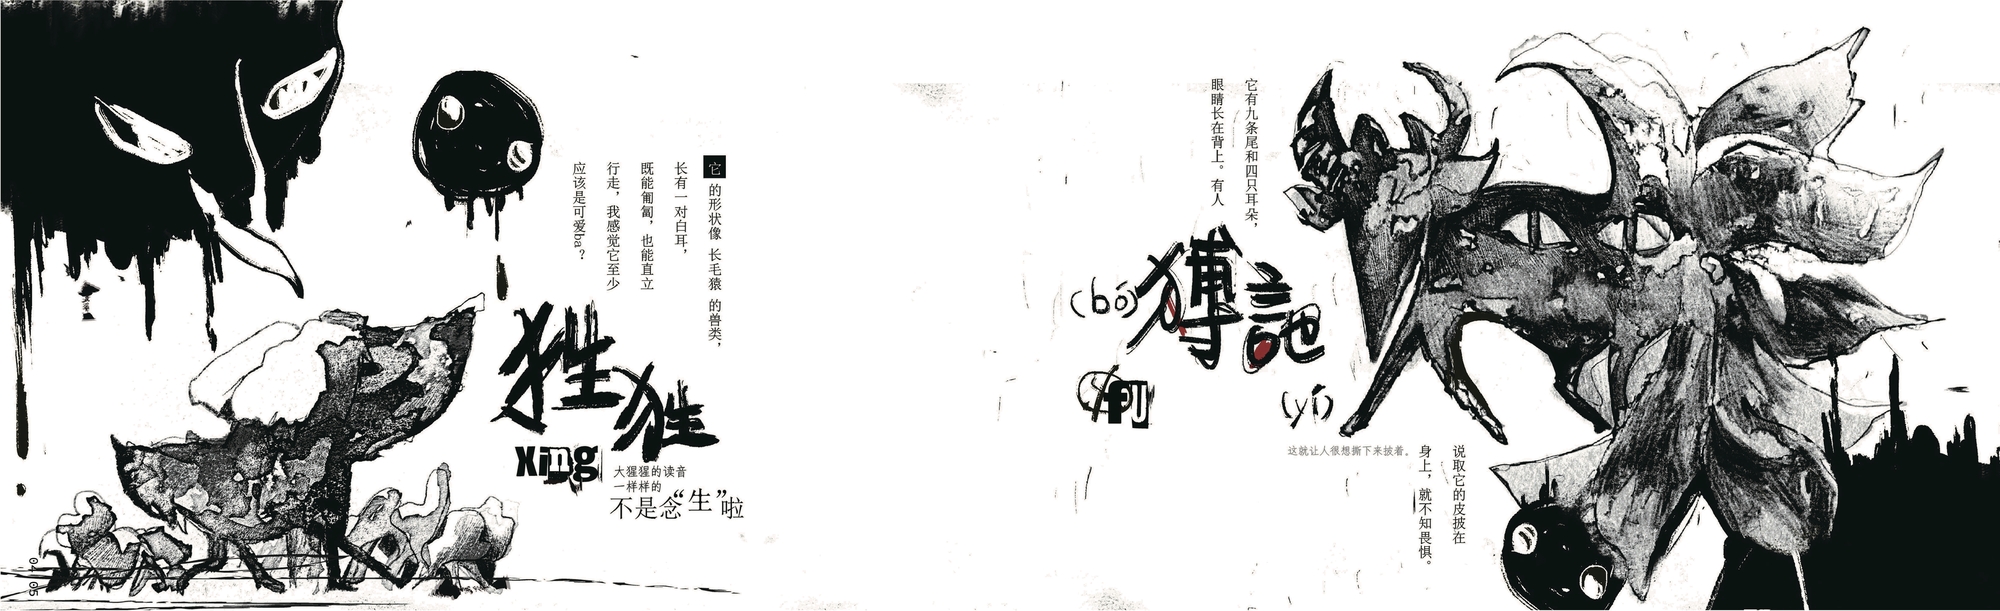 它的形状像 长毛猿 的兽类，
长有一对白耳，
既能匍匐，也能直立
行走，我感觉它至少
应该是可爱ba？
狌狌
xing
大猩猩的读音
一样样的
不是念“生”啦
04 05
它有九条尾和四只耳朵，
眼睛长在背上。有人
猼訑
(bó)
(yí)
说取它的皮披在
身上，就不知畏惧。
这就让人很想撕下来披着。